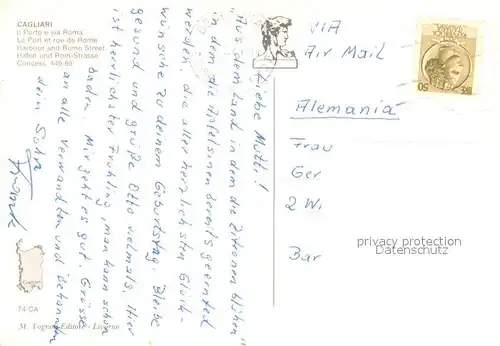 CAGLIARI
Il Porto e via Roma
Le Port et rue de Rome
Harbour and Rome Street
Hafen und Rom-Strasse
Concess. 446/69
VIA
Air Mail
Liebe Mutti!
"Aus dem Land in dem die Zitronen blühen"
in dem die Apfelsinen bereits geerntet
werden, die aller herzlichsten Glück-
wünsche zu deinem Geburtstag. Bleibe
gesund und grüße Otto vielmals. Hier
ist herrlichster Frühling, man kann schon
baden. Mir geht es gut. Grüsse
an alle Verwandten und Bekannten
dein Sohn
Alemania
Frau
Ger
2 W.
Bar
privacy protection
Datenschutz
50
74 CA
Editore - Livorno